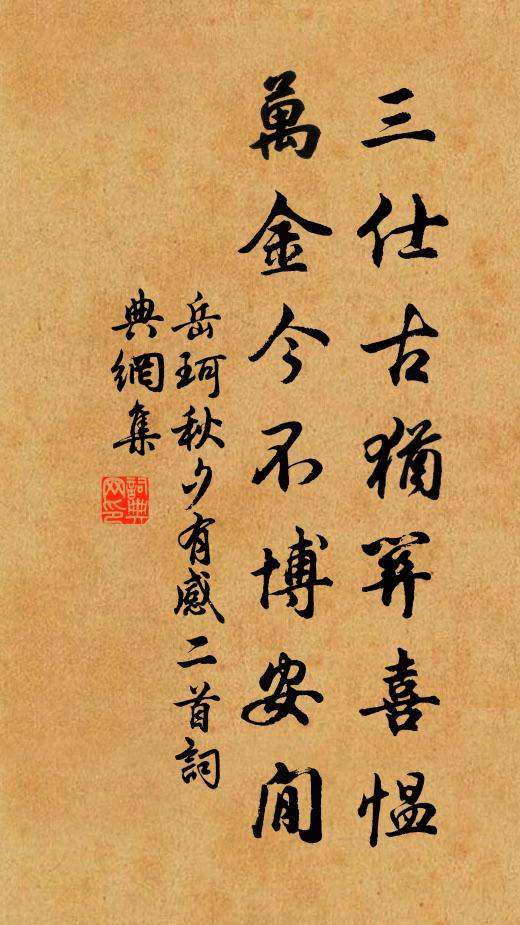 三仕古猶喜愠
萬金今不博安閒
岳珂秋夕有感二首詞
典網集
詞典
网印